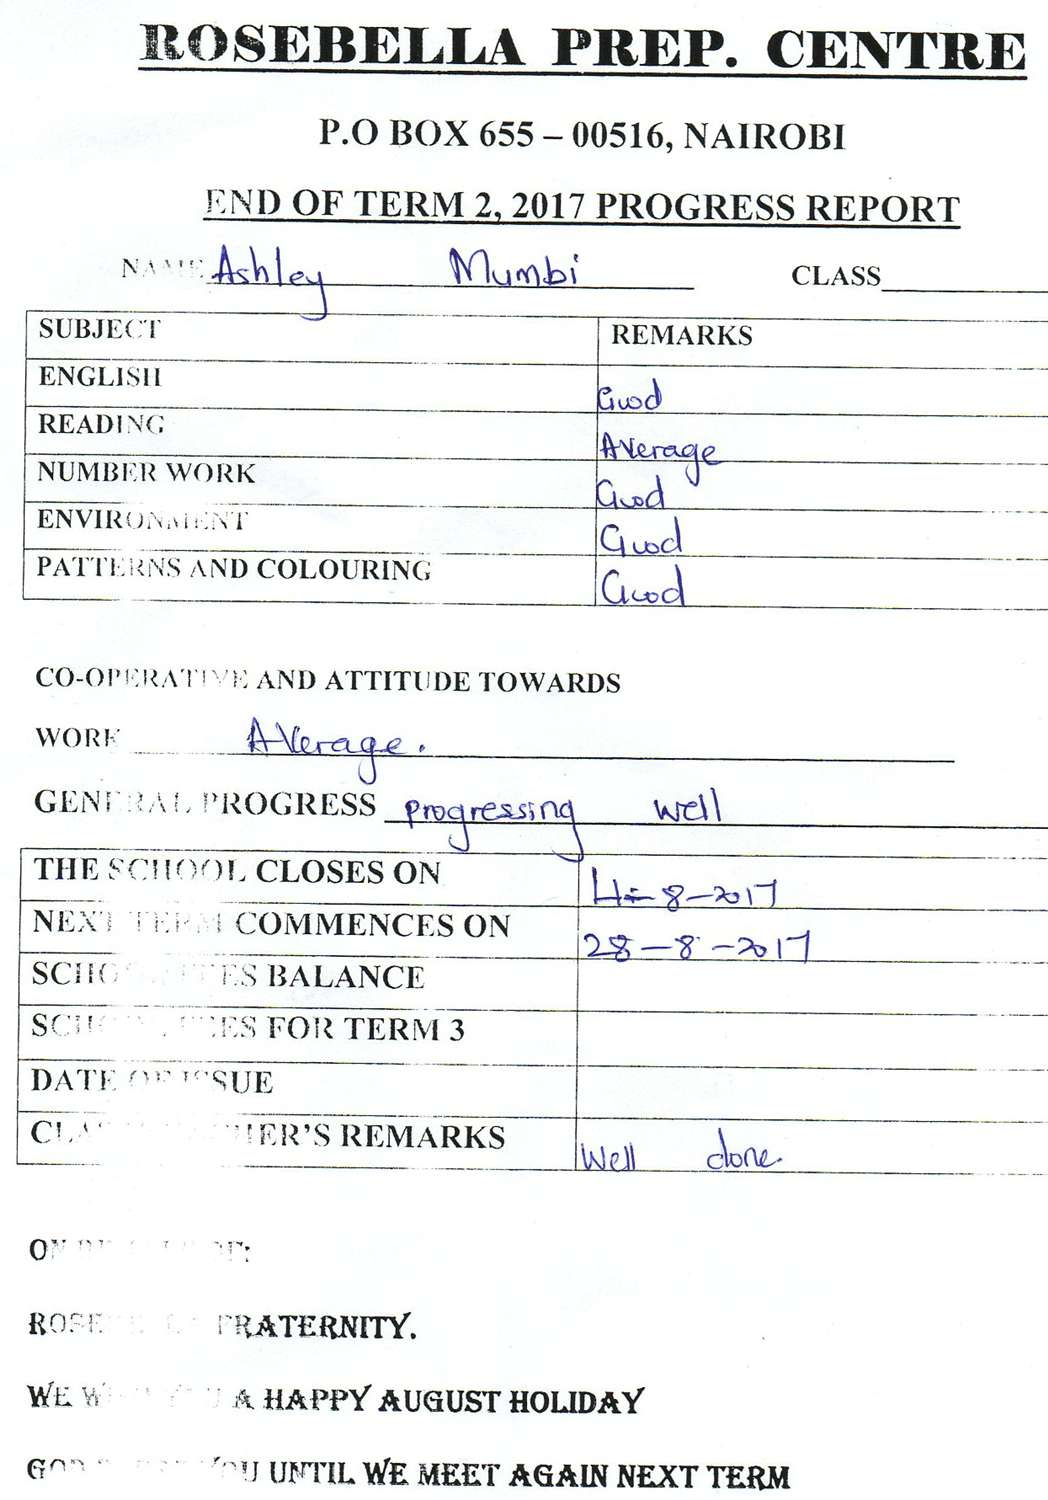 ROSEBELLA PREP. CENTRE
P.O BOX 655 – 00516, NAIROBI
END OF TERM 2, 2017 PROGRESS REPORT
NAME Ashley Mumbi CLASS
SUBJECT REMARKS
ENGLISH Good
READING Average
NUMBER WORK Good
ENVIRONMENT Good
PATTERNS AND COLOURING Good
CO-OPERATIVE AND ATTITUDE TOWARDS
WORK Average.
GENERAL PROGRESS progressing well
THE SCHOOL CLOSES ON 4-8-2017
NEXT TERM COMMENCES ON 28-8-2017
SCHOOL FEES BALANCE
SCHOOL FEES FOR TERM 3
DATE OF ISSUE
CLASS TEACHER'S REMARKS Well done.
ON BEHALF OF:
ROSEBELLA FRATERNITY.
WE WISH YOU A HAPPY AUGUST HOLIDAY
GOD BLESS YOU UNTIL WE MEET AGAIN NEXT TERM